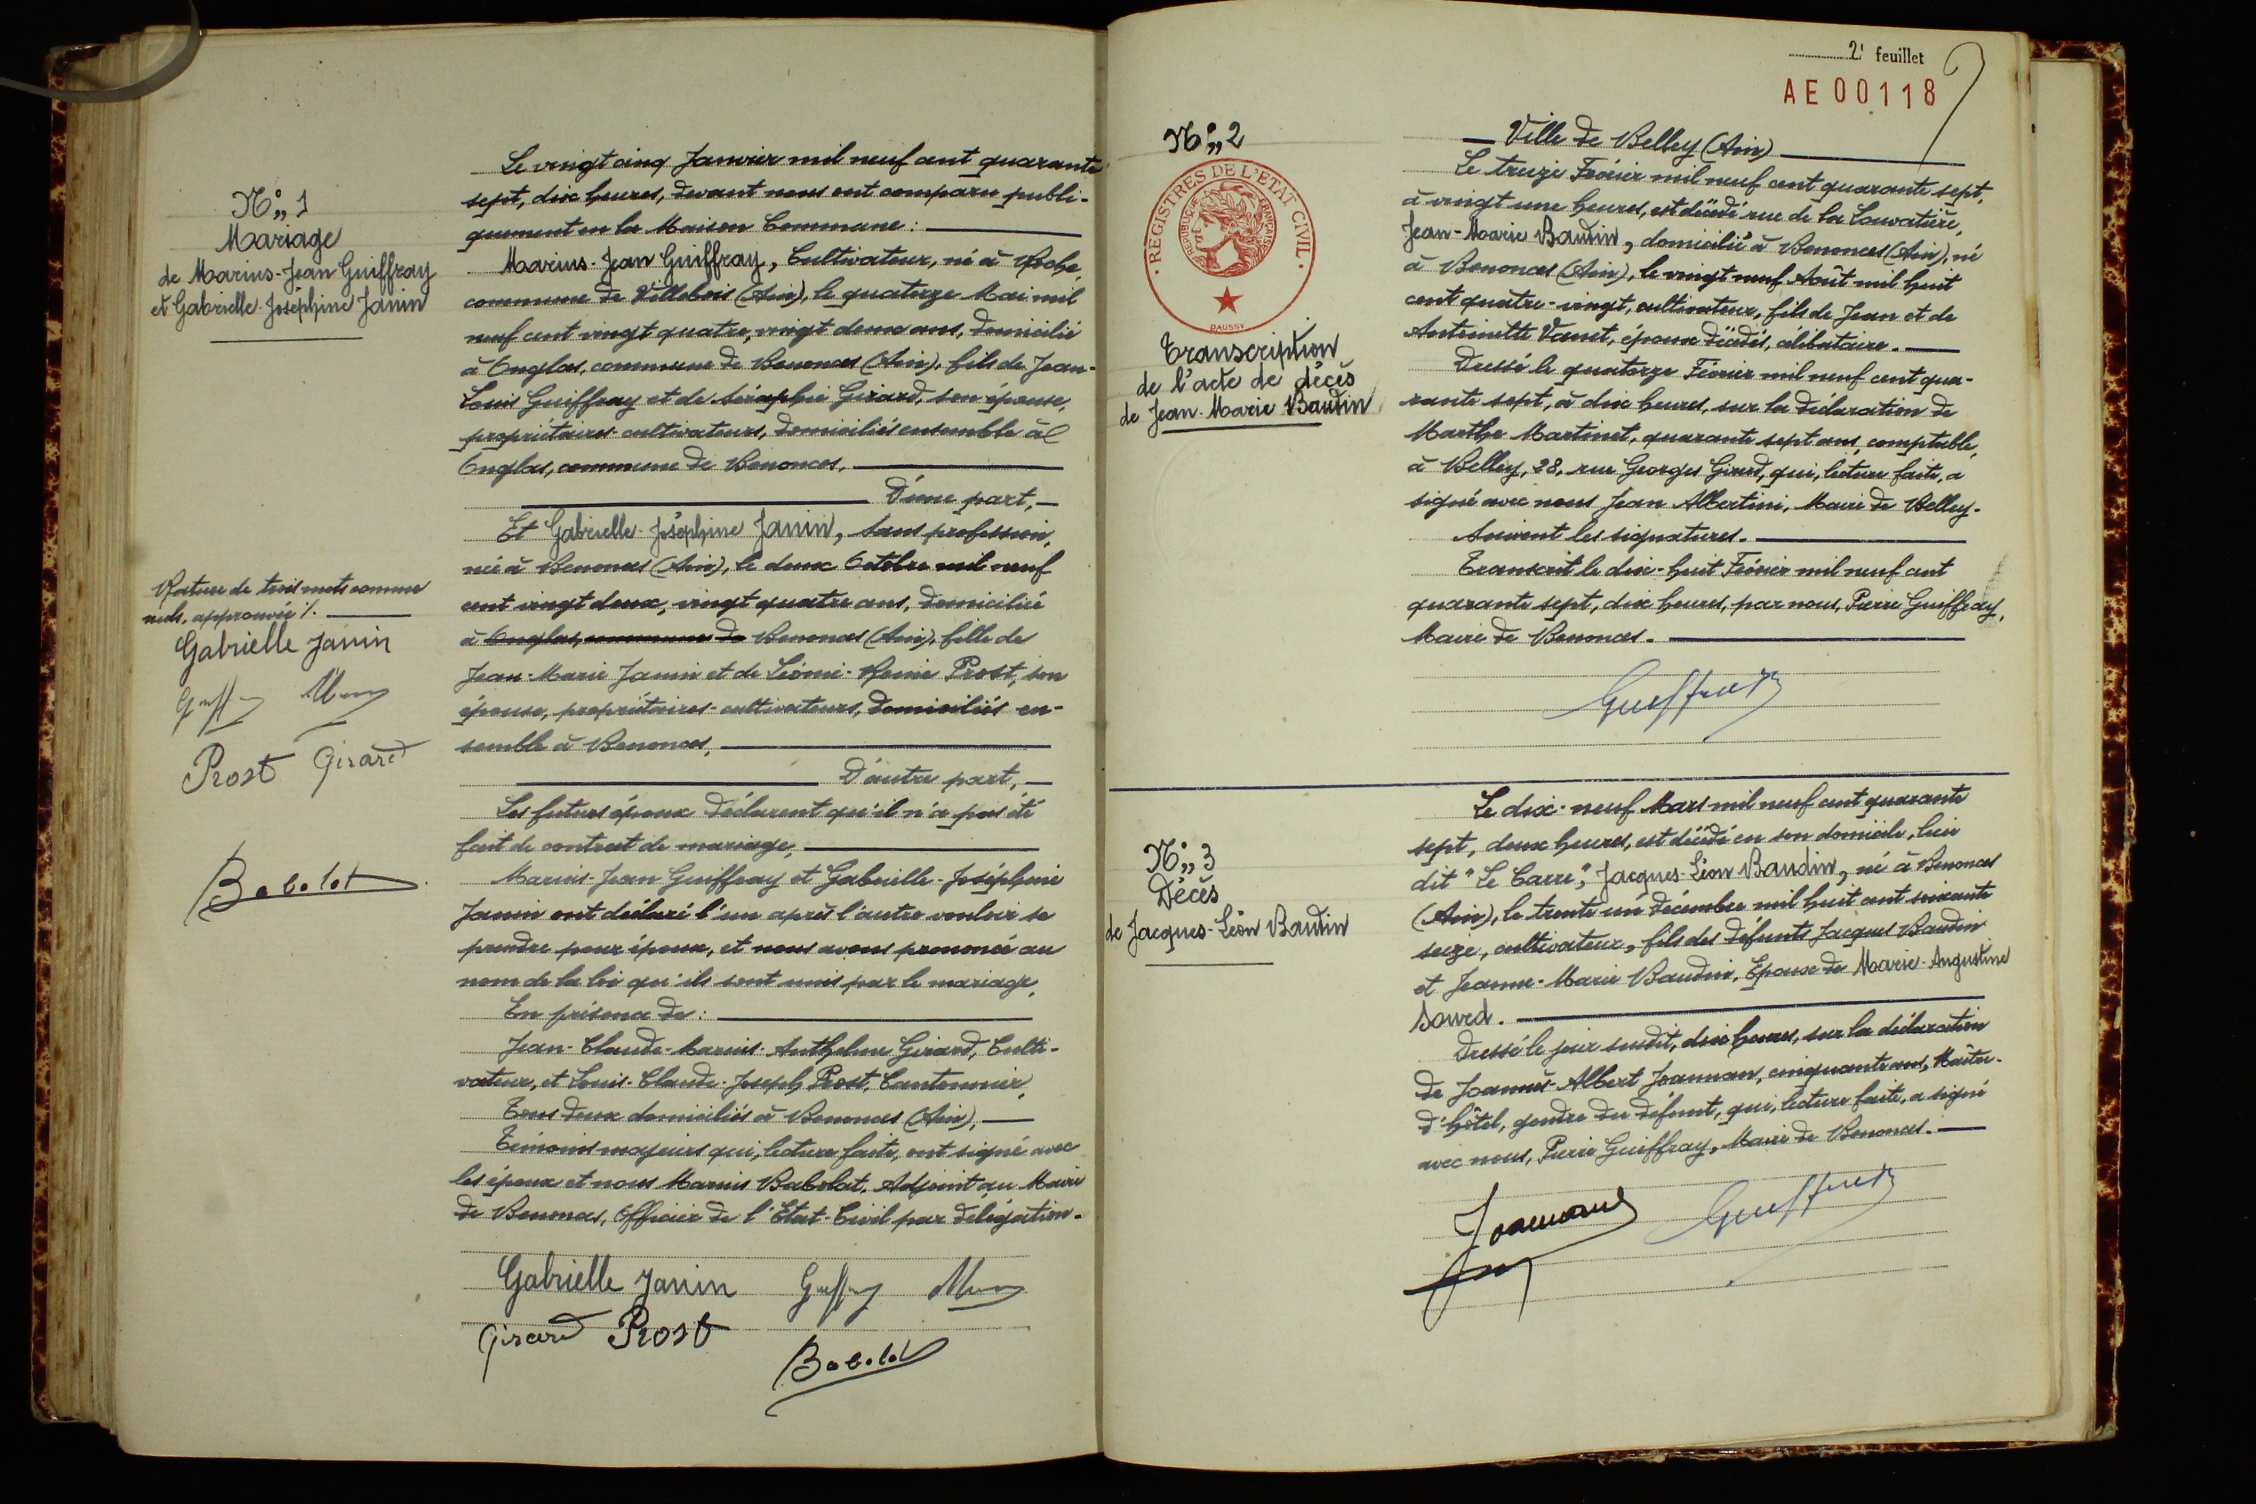 N°,, 1
Mariage
de Marius-Jean Guiffray
et Gabrielle-Joséphine Janin
Le vingt cinq Janvier mil neuf cent quarante
sept, dix heures, devant nous ont comparu publi-
quement en la Maison Commune :
Marius-Jean Guiffray, Cultivateur, né à Roche,
commune de Villebois (Ain), le quatorze Mai mil
neuf cent vingt quatre, vingt deux ans, domicilié
à Onglas, commune de Benonces (Ain), fils de Jean-
Louis Guiffray et de Séraphie Girard, son épouse,
propriétaires-cultivateurs, domiciliés ensemble à
Onglas, commune de Benonces,
D'une part,
Et Gabrielle-Joséphine Janin, sans profession,
née à Benonces (Ain), le deux Octobre mil neuf
cent vingt deux, vingt quatre ans, domiciliée
à Onglas, commune de Benonces (Ain), fille de
Jean-Marie Janin et de Léonie-Reine Prost, son
épouse, propriétaires-cultivateurs, domiciliés en-
semble à Benonces,
D'autre part,
Les futurs époux déclarent qu'il n'a pas été
fait de contrat de mariage,
Marius-Jean Guiffray et Gabrielle-Joséphine
Janin ont déclaré l'un après l'autre vouloir se
prendre pour époux, et nous avons prononcé au
nom de la loi qu'ils sont unis par le mariage,
En présence de :
Jean-Claude-Marius-Anthelme Girard, Culti-
vateur, et Louis-Claude-Joseph Prost, Cantonnier,
Tous deux domiciliés à Benonces (Ain),
Témoins majeurs qui, lecture faite, ont signé avec
les époux et nous Marius Babolat, Adjoint au Maire
de Benonces, Officier de l'Etat-Civil par délégation.
Rature de trois mots comme
nuls, approuvée ./.
Gabrielle Janin
Prost Girard
Babolat
Gabrielle Janin
Girard Prost
Babolat
2e feuillet
AE00118
N°,, 2
REGISTRES DE L'ETAT CIVIL
REPUBLIQUE FRANÇAISE
DAUSSY
Transcription
de l'acte de décès
de Jean-Marie Baudin
Ville de Belley (Ain)
Le treize Février mil neuf cent quarante sept,
à vingt une heures, est décédé rue de la Louvatière,
Jean-Marie Baudin, domicilié à Benonces (Ain), né
à Benonces (Ain), le vingt neuf Août mil huit
cent quatre-vingt, cultivateur, fils de Jean et de
Antoinette Vanet, époux décédés, célibataire.
Dressé le quatorze Février mil neuf cent qua-
rante sept, à dix heures, sur la déclaration de
Marthe Martinet, quarante sept ans, comptable,
à Belley, 28, rue Georges Girerd, qui, lecture faite, a
signé avec nous Jean Albertini, Maire de Belley.
Suivent les signatures.
Transcrit le dix-huit Février mil neuf cent
quarante sept, dix heures, par nous, Pierre Guiffray,
Maire de Benonces.
Guiffray
N°,, 3
Décès
de Jacques-Léon Baudin
Le dix-neuf Mars mil neuf cent quarante
sept, deux heures, est décédé en son domicile, lieu
dit "Le Carre", Jacques-Léon Baudin, né à Benonces
(Ain), le trente un décembre mil huit cent soixante
seize, cultivateur, fils des défunts Jacques Baudin
et Jeanne-Marie Baudin, Epoux de Marie-Augustine
Sourd.
Dressé le jour susdit, dix heures, sur la déclaration
de Joannès-Albert Joannan, cinquante ans, Maître-
d'hôtel, gendre du défunt, qui, lecture faite, a signé
avec nous, Pierre Guiffray, Maire de Benonces.
Guiffray